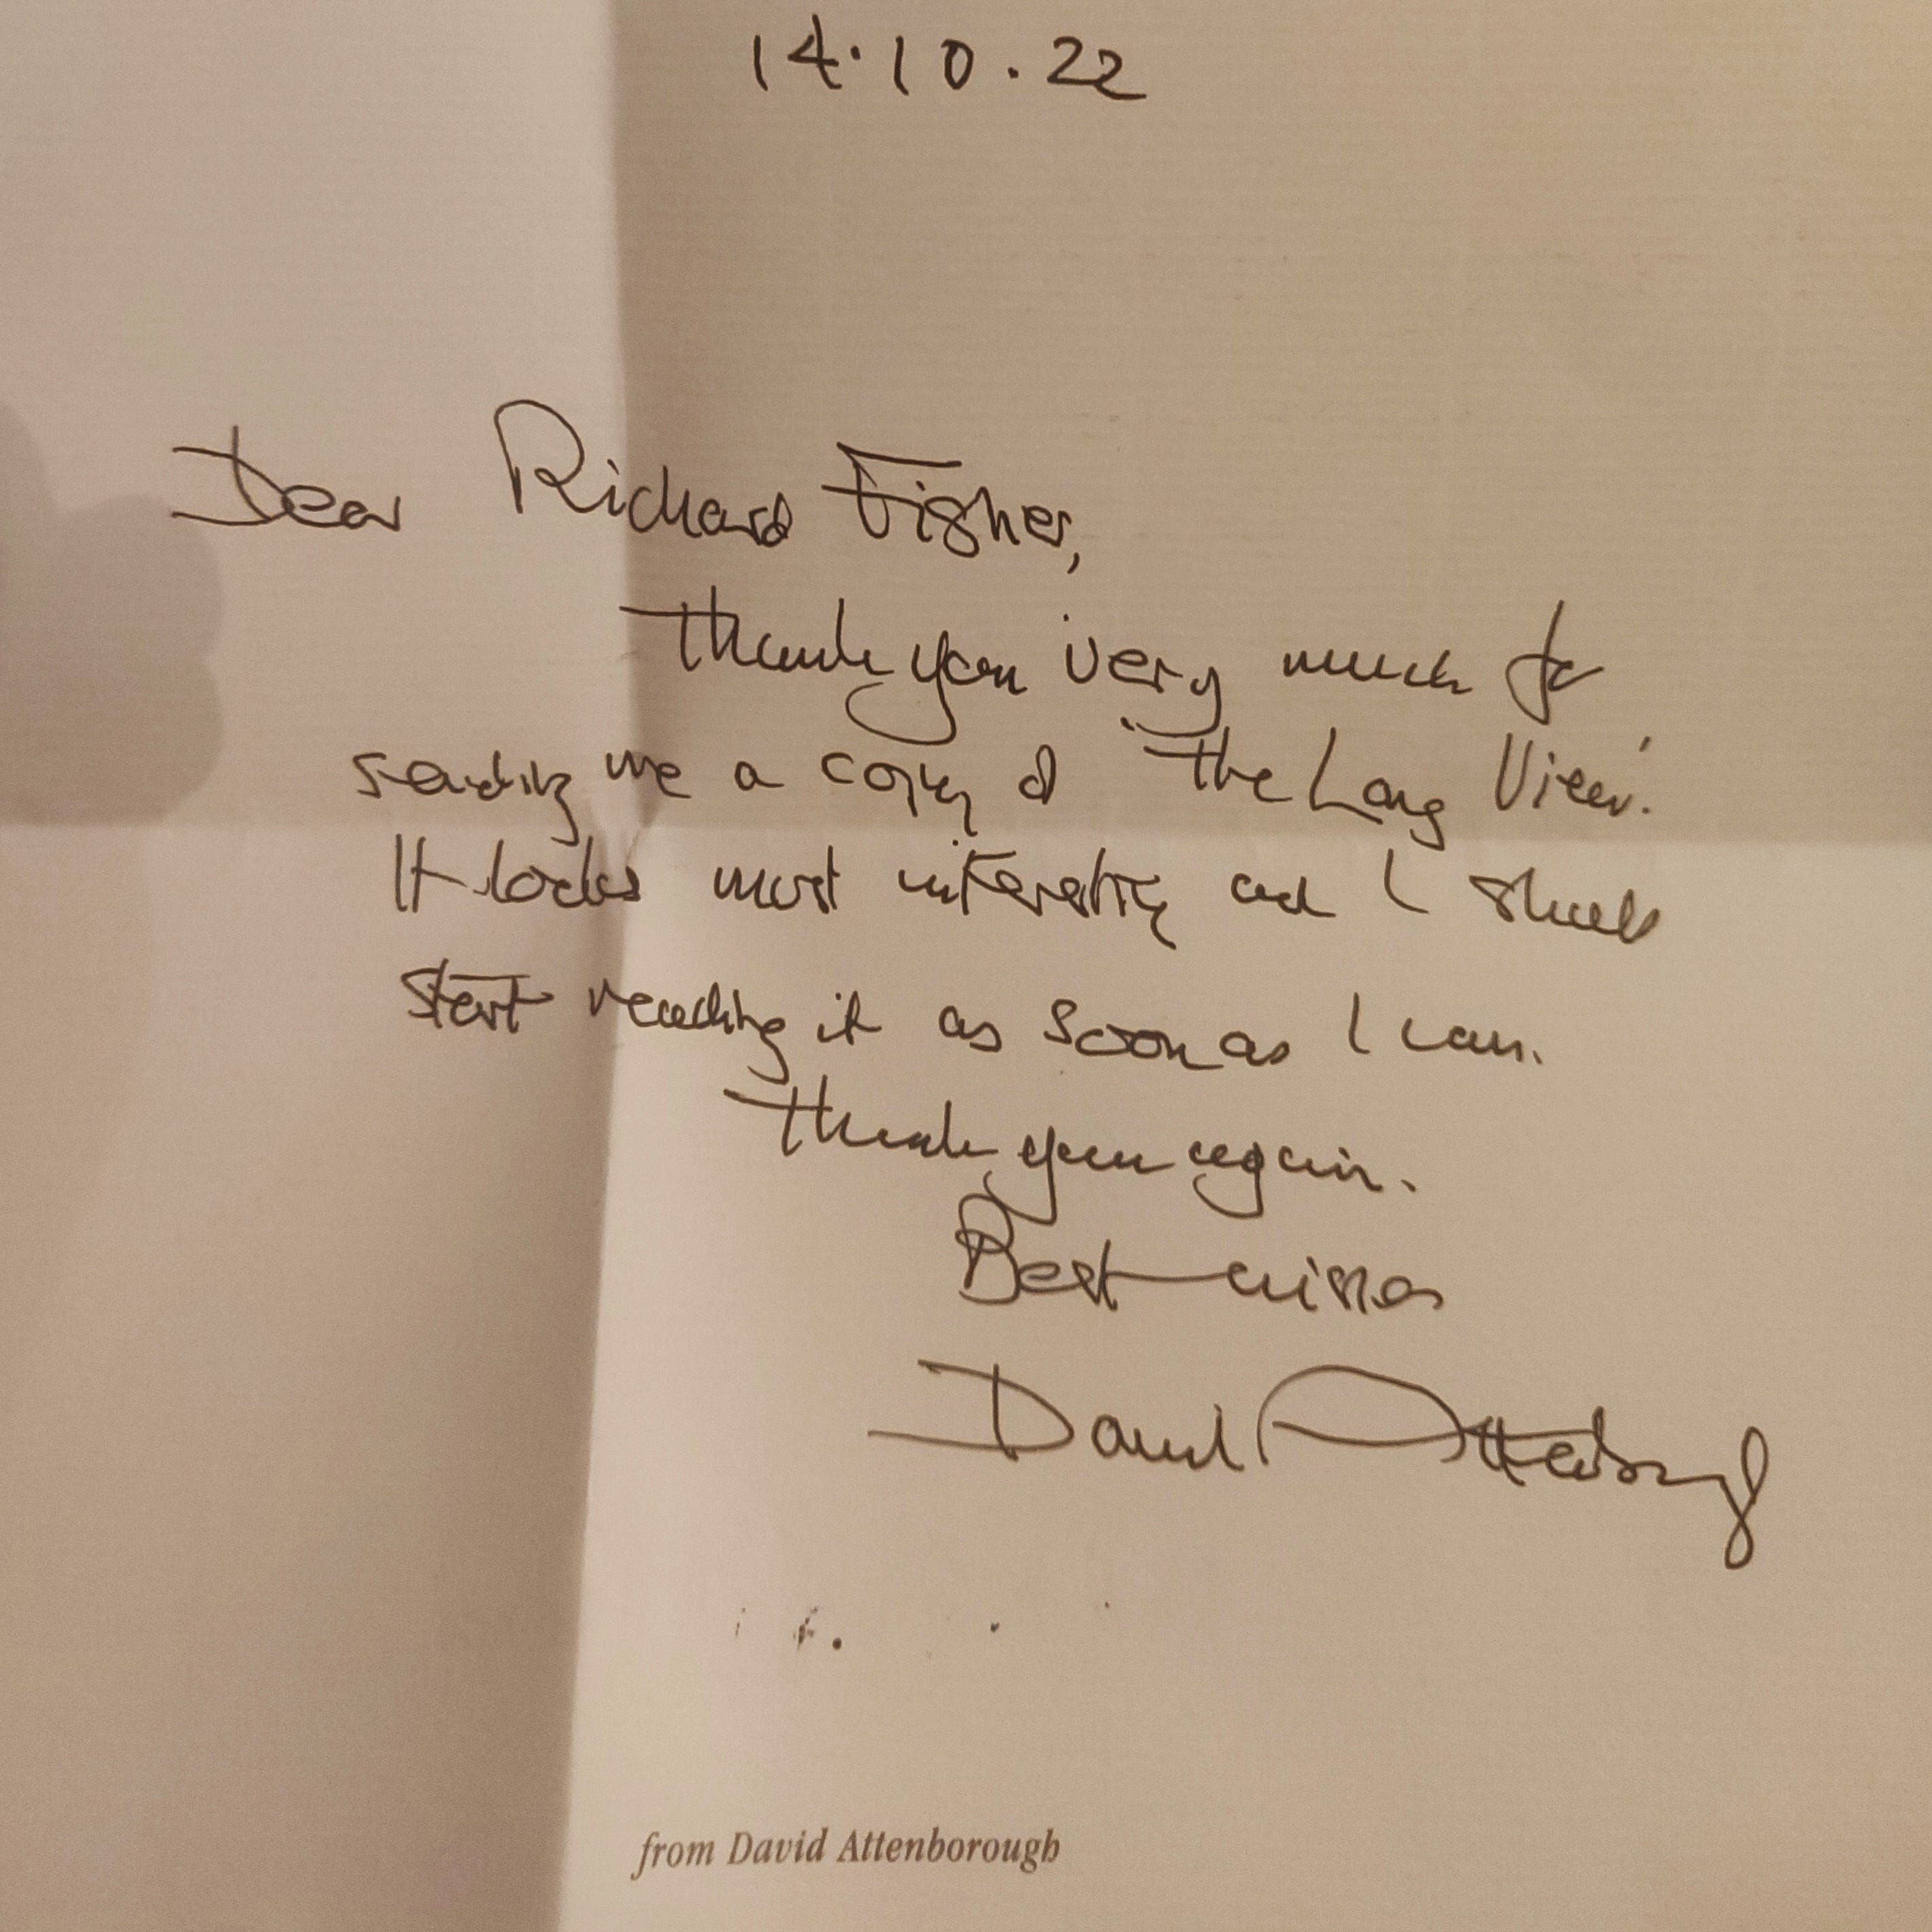 14.10.22
Dear Richard Fisher,
Thank you very much for
sending me a copy of 'The Long View'.
It looks most interesting and I shall
start reading it as soon as I can.
Thank you again.
Best wishes
David Attenborough
from David Attenborough